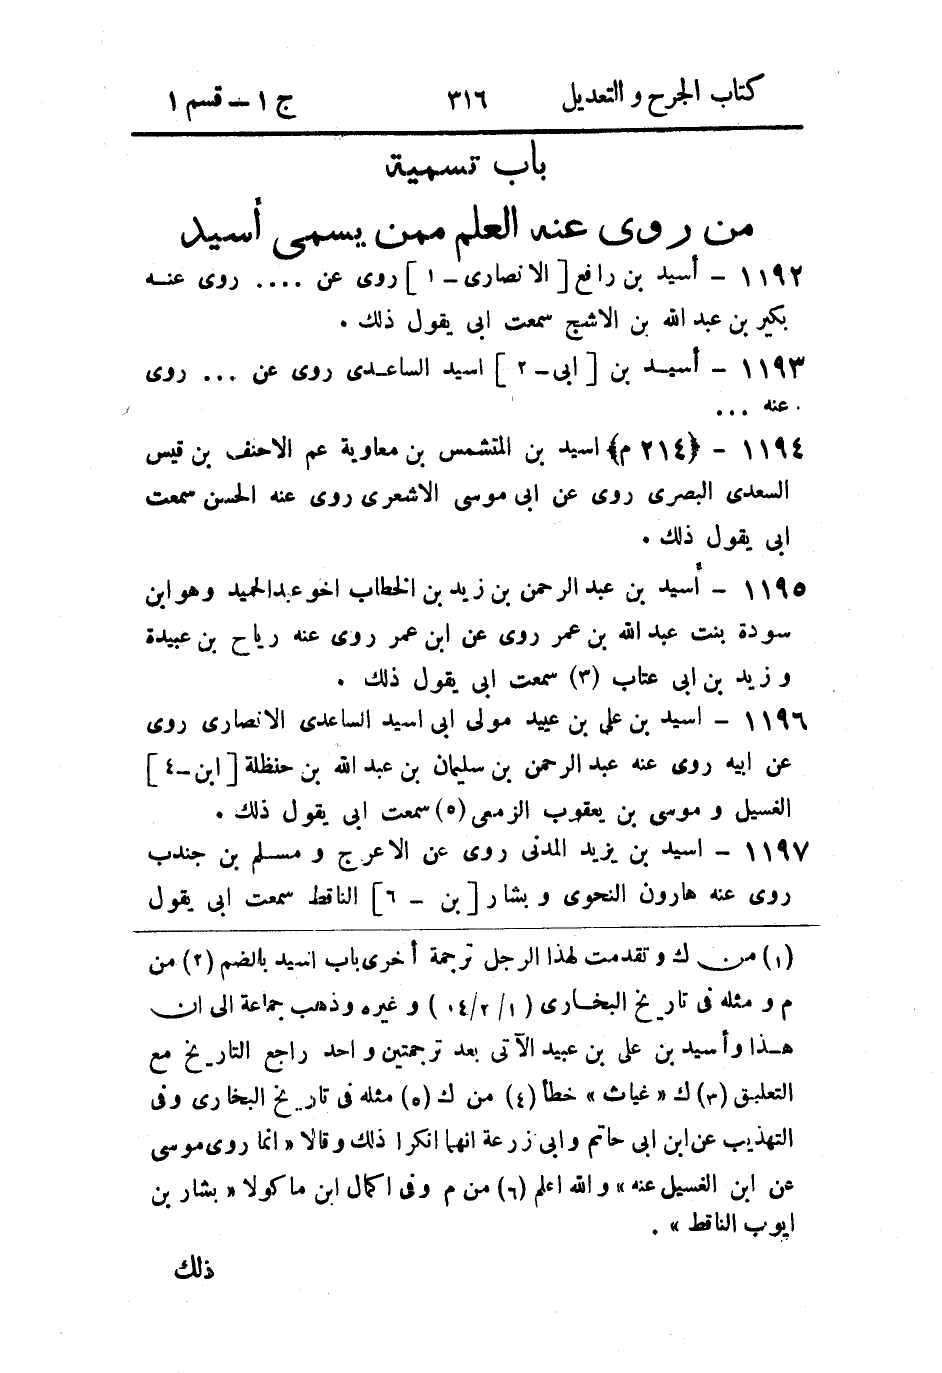 كتاب الجرح و التعديل ٣١٦ ج ١ – قسم ١
باب تسمية
من روى عنه العلم ممن يسمى أسيد
١١٩٢ – أسيد بن رافع [ الانصارى – ١ ] روى عن .... روى عنه
بكير بن عبد الله بن الاشج سمعت ابى يقول ذلك .
١١٩٣ – أسيد بن [ ابى – ٢ ] اسيد الساعدى روى عن ... روى
عنه ...
١١٩٤ – ﴿٢١٤ م﴾ اسيد بن المتشمس بن معاوية عم الاحنف بن قيس
السعدى البصرى روى عن ابى موسى الاشعرى روى عنه الحسن سمعت
ابى يقول ذلك .
١١٩٥ – أسيد بن عبد الرحمن بن زيد بن الخطاب اخو عبد الحميد وهو ابن
سودة بنت عبد الله بن عمر روى عن ابن عمر روى عنه رياح بن عبيدة
و زيد بن ابى عتاب (٣) سمعت ابى يقول ذلك .
١١٩٦ – اسيد بن على بن عبيد مولى ابى اسيد الساعدى الانصارى روى
عن ابيه روى عنه عبد الرحمن بن سليمان بن عبد الله بن حنظلة [ ابن – ٤ ]
الغسيل و موسى بن يعقوب الزمعى (٥) سمعت ابى يقول ذلك .
١١٩٧ – اسيد بن يزيد المدنى روى عن الاعرج و مسلم بن جندب
روى عنه هارون النحوى و بشار [ بن – ٦ ] الناقط سمعت ابى يقول
(١) من ك و تقدمت لهذا الرجل ترجمة أخرى باب اسيد بالضم (٢) من
م و مثله فى تاريخ البخارى ( ١/ ٢/ ٠٤ ) و غيره و ذهب جماعة الى ان
هذا و أسيد بن على بن عبيد الآتى بعد ترجمتين واحد راجع التاريخ مع
التعليق (٣) ك « غياث » خطأ (٤) من ك (٥) مثله فى تاريخ البخارى وفى
التهذيب عن ابن ابى حاتم و ابى زرعة انهما انكرا ذلك و قالا « انما روى موسى
عن ابن الغسيل عنه » و الله اعلم (٦) من م وفى اكمال ابن ماكولا « بشار بن
ايوب الناقط » .
ذلك